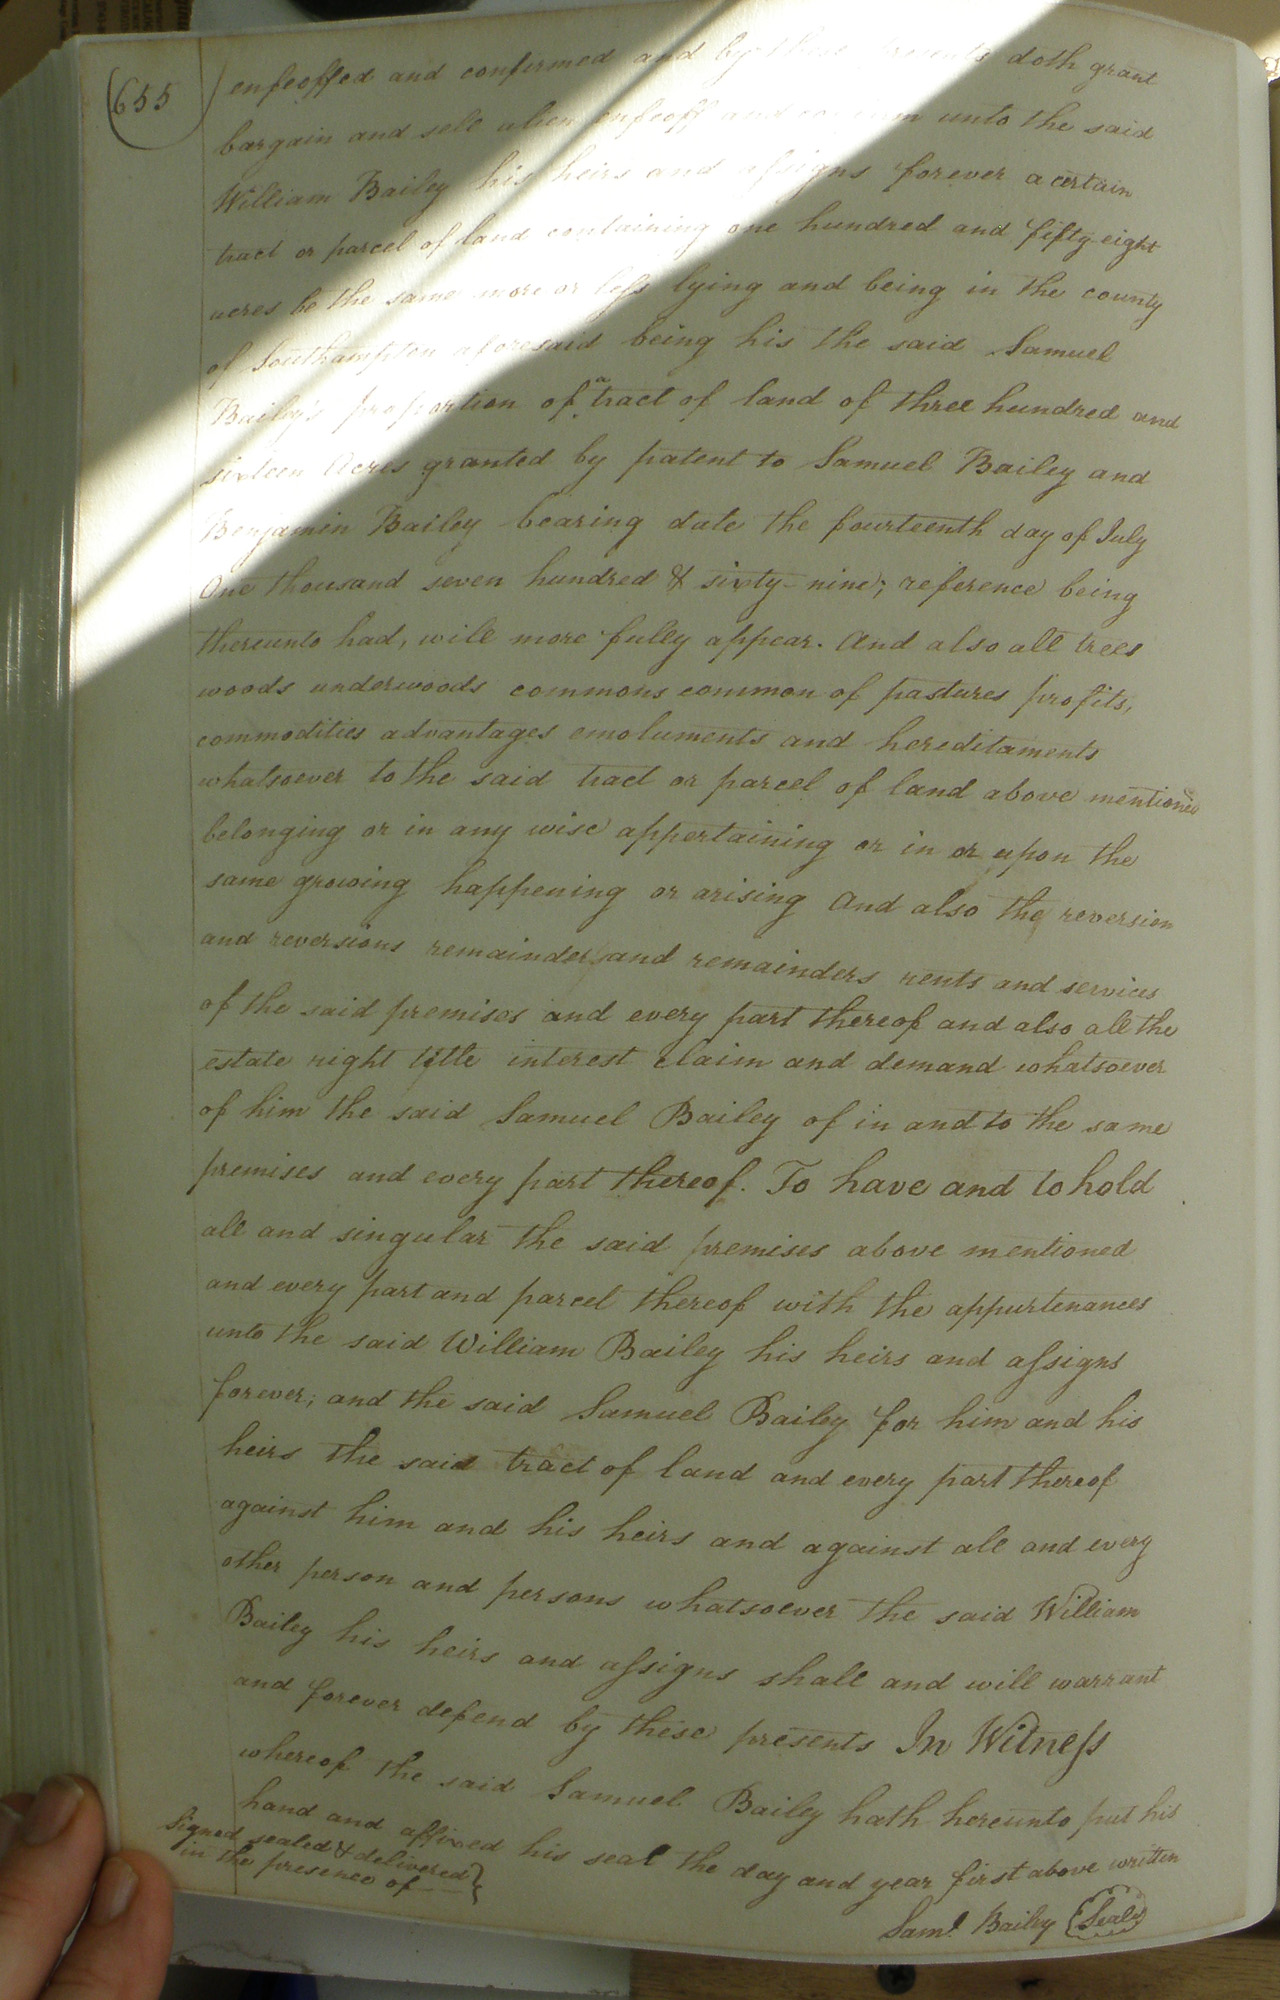 655
enfeoffed and confirmed and by these presents doth grant
bargain and sell alien enfeoff and confirm unto the said
William Bailey his heirs and assigns forever a certain
tract or parcel of land containing one hundred and fifty-eight
acres be the same more or less lying and being in the county
of Southampton aforesaid being his the said Samuel
Bailey's proportion of a tract of land of three hundred and
sixteen Acres granted by patent to Samuel Bailey and
Benjamin Bailey bearing date the fourteenth day of July
One thousand seven hundred & sixty-nine; reference being
thereunto had, will more fully appear. And also all trees
woods underwoods commons common of pastures profits,
commodities advantages emoluments and hereditaments
whatsoever to the said tract or parcel of land above mentioned
belonging or in any wise appertaining or in or upon the
same growing happening or arising And also the reversion
and reversions remainder and remainders rents and services
of the said premises and every part thereof and also all the
estate right title interest claim and demand whatsoever
of him the said Samuel Bailey of in and to the same
premises and every part thereof. To have and to hold
all and singular the said premises above mentioned
and every part and parcel thereof with the appurtenances
unto the said William Bailey his heirs and assigns
forever; and the said Samuel Bailey for him and his
heirs the said tract of land and every part thereof
against him and his heirs and against all and every
other person and persons whatsoever the said William
Bailey his heirs and assigns shall and will warrant
and forever defend by these presents In Witness
whereof the said Samuel Bailey hath hereunto put his
hand and affixed his seal the day and year first above written
Signed sealed & delivered
in the presence of
Saml. Bailey (Seal)